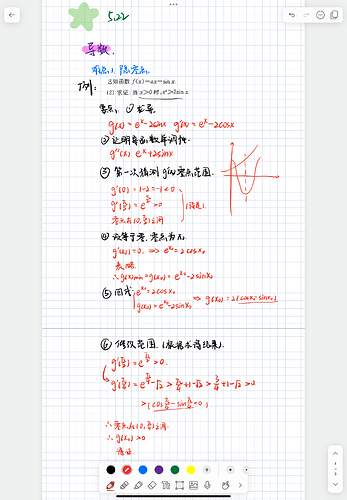 5.22
导数.
难点1. 隐零点.
例:
已知函数 f(x)=ax-sin x.
(2) 求证: 当 x>0 时, eˣ>2sin x.
零点1. ① 求导.
g(x) = eˣ-2sinx g'(x) = eˣ-2cosx
② 证明导函数单调性.
g''(x) eˣ+2sinx
③ 第一次猜测 g'(x)零点范围.
g'(0) = 1-2 = -1<0
g'(π/2) = e^(π/2) > 0
零点在(0, π/2)之间
④ 设等于零. 零点为x₀
g'(x₀) = 0. ⇒ e^x₀ = 2cosx₀
∴ g(x)min = g(x₀) = e^x₀-2sinx₀
⑤ 回代
e^x₀ = 2cosx₀
g(x₀) = e^x₀-2sinx₀ ⇒ g(x₀) = 2(cosx₀-sinx₀)
⑥ 修改范围.
g'(π/2) = e^(π/2) > 0.
g'(π/4) = e^(π/4)-√2 > π/4+1-√2 > 3/4+1-√2 > 0
> (cos π/4 - sin π/4 = 0)
∴ 零点在(0, π/4)之间
∴ g(x₀) > 0